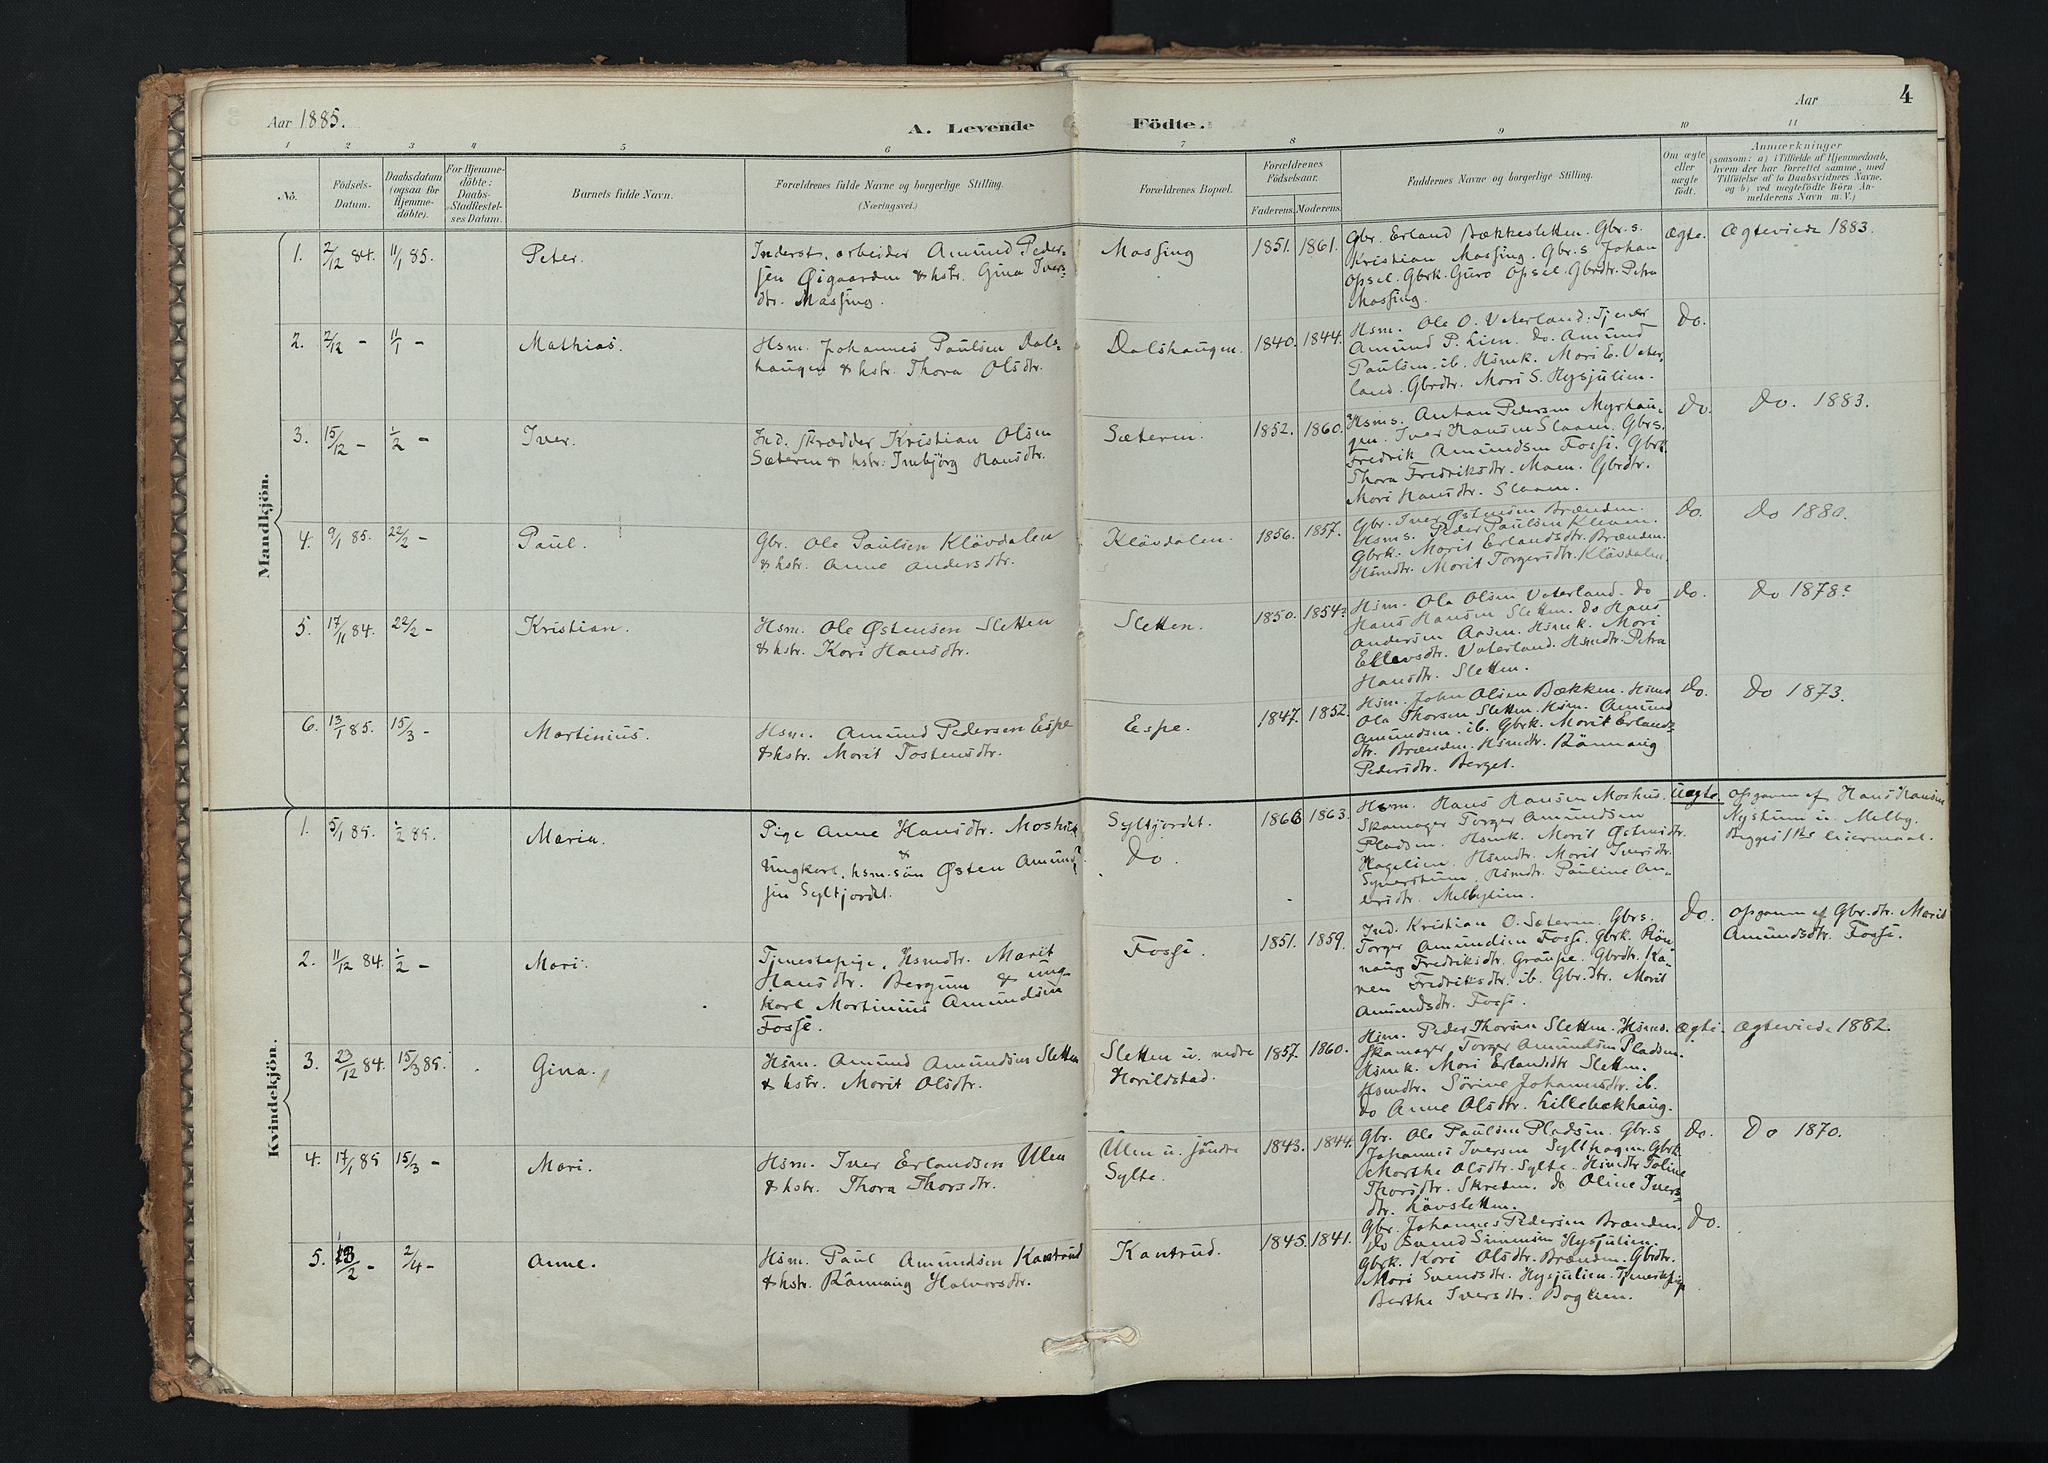 Aar 1885.
A. Levende Födte.
Aar
4
1 2 3 4 5 6 7 8 9 10 11
No.
Födsels-
Datum.
Daabsdatum
(ogsaa for
Hjemme-
döbte).
For Hjemme-
döbte:
Daabs-
Stadfæstel-
ses Datum.
Barnets fulde Navn.
Forældrenes fulde Navne og borgerlige Stilling.
(Næringsvei.)
Forældrenes Bopæl.
Forældrenes
Födselsaar.
Faderens.
Moderens.
Faddernes Navne og borgerlige Stilling.
Om ægte
eller
uægte
födt.
Anmærkninger
(saasom: a) i Tilfælde af Hjemmedaab,
hvem der har forrettet samme, med
Tilföielse af to Daabsvidners Navne,
og b) ved uægtefödte Börn An-
melderens Navn m. V.)
Mandkjön.
1. 2/12 84. 11/1 85. Peter.
Inderst, arbeider Amund Peder-
sen Øigaarden & hstr. Gina Ivers-
dtr. Massing.
Massing
1851. 1861.
Gbr. Erland Bækkesletten. Gbr.s.
Kristian Massing. Gbr.s Johan
Opsel. Gbrk. Guro Opsel. Gbrdtr. Petra
Massing.
ægte. Ægteviede 1883.
2. 2/12 - 11/1 - Mathias.
Hsm. Johannes Paulsen Dals-
haugen & hstr. Thora Olsdtr.
Dalshaugen.
1840. 1844.
Hsm. Ole O. Vaterland. Tjener
Amund P. Lien. do. Amund
Paulsen. ib. Hsmk. Mari E. Vater-
land. Gbrdtr. Mari S. Hysjulien.
Do.
3. 15/12 - 1/2 - Iver.
Ind. skrædder Kristian Olsen
Sæteren & hstr. Imbjörg Hansdtr.
Sæteren.
1852. 1860.
Hsms. Anton Pedersen Myrhau-
gen. Iver Hansen Slaaen. Gbrs.
Fredrik Amundsen Fosse. Gbrk.
Thora Fredriksdtr. Moen. Gbrdtr.
Mari Hansdtr. Slaaen.
Do. Do. 1883.
4. 9/1 85. 22/2 - Paul.
Gbr. Ole Paulsen Klövdalen
& hstr. Anne Andersdtr.
Klövdalen.
1856. 1857.
Gbr. Iver Østensen Brænden.
Hsms. Peder Paulsen Kleven.
Gbrk. Marit Erlandsdtr. Brænden.
Hsmdtr. Marit Torgersdtr. Klövdalen.
Do. Do 1880.
5. 17/11 84. 22/2 - Kristian.
Hsm. Ole Østensen Sletten
& hstr. Kari Hansdtr.
Sletten.
1850. 1854?
Hsm. Ola Olsen Vaterland. do
Hans Hansen Sletten. do Hans
Andersen Aasen. Hsmk. Mari
Ellevsdtr. Vaterland. Hsmdtr. Petra
Hansdtr. Sletten.
Do. Do 1878?
6. 13/1 85. 15/3 - Martinius.
Hsm. Amund Pedersen Espe
& hstr. Marit Tostensdtr.
Espe.
1847. 1852.
Hsm. John Olsen Bækken. Hsms
Ola Thorsen Sletten. Hsm. Amund
Amundsen. ib. Gbrk. Marit Erlands-
dtr. Brænden. Hsmdtr. Rönnaug
Pedersdtr. Berget.
Do. Do 1873.
Kvindekjön.
1. 5/1 85. 1/2 85. Maria.
Pige Anne Hansdtr. Moshus
&
Ungkarl, hsm.sön Østen Amund-
sen Syltjordet.
Syltjordet.
Do.
1863.
Hsm. Hans Hansen Moshus.
Skomager Torger Amundsen
Pladsen. Hsmk. Marit Østensdtr.
Hagelien. Hsmdtr. Marit Iversdtr.
Hsmdtr. Pauline An-
dersdtr. Melbylien.
Uægte. opgaven af Hans Hansen
Nystuen u. Melby.
Begges 1ste leiermaal.
2. 11/12 84. 1/2 - Mari.
Tjenestepige, Hsmdtr. Marit
Hansdtr. Bergum & ung-
karl Martinius Amundsen
Fosse.
Fosse.
1851. 1859.
Ind. Kristian O. Sæteren. Gbrs.
Torger Amundsen Fosse. Gbrk. Rön-
naug Fredriksdtr. Graupe. Gbrdtr. Ka-
ren Fredriksdtr. ib. Gbr.dtr. Marit
Amundsdtr. Fosse.
Do. opgaven af Gbr.dtr. Marit
Amundsdtr. Fosse.
3. 23/12 84. 15/3 85. Gina.
Hsm. Amund Amundsen Sletten
& hstr. Marit Olsdtr.
Sletten u. nedre
Horildstad.
1857. 1860.
Hsm. Peder Thorsen Sletten. Hsmd.
Skomager Torger Amundsen Pladsen.
Hsmk. Mari Erlandsdtr Sletten.
Hsmdtr. Sörine Johannesdtr. ib.
Do Anne Olsdtr. Lillebækhaug.
ægte. Ægteviede 1882.
4. 17/1 85 15/3 - Mari.
Hsm. Iver Erlandsen Ulen
& hstr. Thora Thorsdtr.
Ulen u. söndre
Sylte.
1843. 1844.
Gbr. Ole Paulsen Pladsen. Gbr.s
Johannes Iversen Sylthagen. Gbrk.
Marthe Olsdtr. Sylte. Hsmdtr Toline
Thorsdtr. Skreden. do Oline Ivers-
dtr. Lövsletten.
Do. Do 1870.
5. /2 - 2/4 - Anne.
Hsm. Paul Amundsen Kantrud
& hstr. Rannaug Halvorsdtr.
Kantrud.
1845. 1841.
Gbr. Johannes Pedersen Brænden.
do Svend Simensen Hysjulien.
Gbrk. Kari Olsdtr. Brænden. Gbrdtr.
Mari Svendsdtr. Hysjulien. Tjenestepige
Berthe Iversdtr. Boglien.
Do.